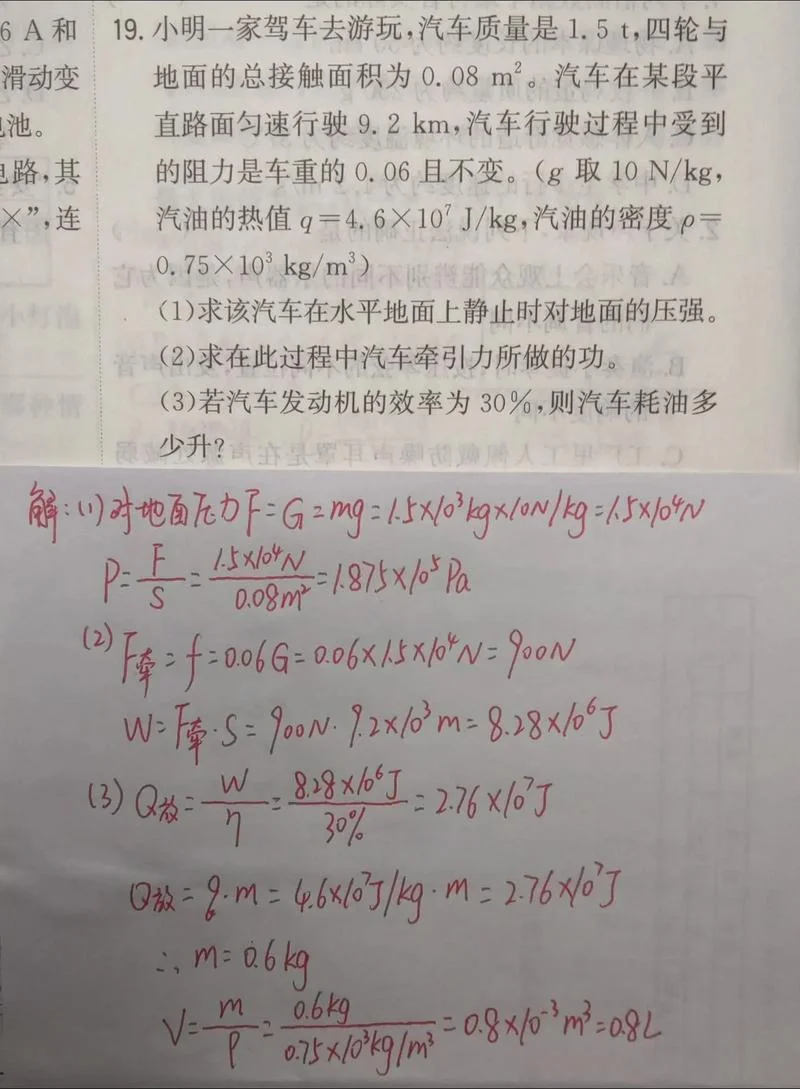 6 A 和
滑动变
电池。
电路,其
×”,连
19. 小明一家驾车去游玩,汽车质量是 1.5 t,四轮与
地面的总接触面积为 0.08 m²。汽车在某段平
直路面匀速行驶 9.2 km,汽车行驶过程中受到
的阻力是车重的 0.06 且不变。(g 取 10 N/kg,
汽油的热值 q=4.6×10⁷ J/kg,汽油的密度 ρ=
0.75×10³ kg/m³)
(1)求该汽车在水平地面上静止时对地面的压强。
(2)求在此过程中汽车牵引力所做的功。
(3)若汽车发动机的效率为 30%,则汽车耗油多
少升?
解:(1)对地面压力F=G=mg=1.5×10³kg×10N/kg=1.5×10⁴N
P=F/S=1.5×10⁴N/0.08m²=1.875×10⁵Pa
(2) F牵=f=0.06G=0.06×1.5×10⁴N=900N
W=F牵·S=900N·9.2×10³m=8.28×10⁶J
(3) Q放=W/η=8.28×10⁶J/30%=2.76×10⁷J
Q放=q·m=4.6×10⁷J/kg·m=2.76×10⁷J
∴m=0.6kg
V=m/ρ=0.6kg/0.75×10³kg/m³=0.8×10⁻³m³=0.8L